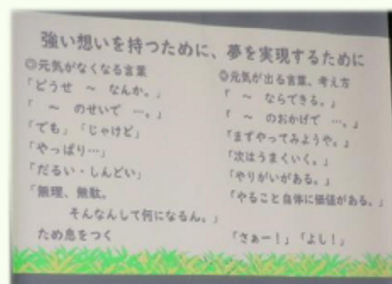 強い想いを持つために、夢を実現するために
◎元気がなくなる言葉
「どうせ ～ なんか。」
「 ～ のせいで …。」
「でも」「じゃけど」
「やっぱり…」
「だるい・しんどい」
「無理、無駄。
そんなんして何になるん。」
ため息をつく
◎元気が出る言葉、考え方
「 ～ ならできる。」
「 ～ のおかげで …。」
「まずやってみようや。」
「次はうまくいく。」
「やりがいがある。」
「やること自体に価値がある。」
「さぁー！」「よし！」